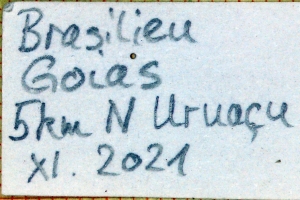 Brasilien
Goias
5km N Uruaçu
XI. 2021